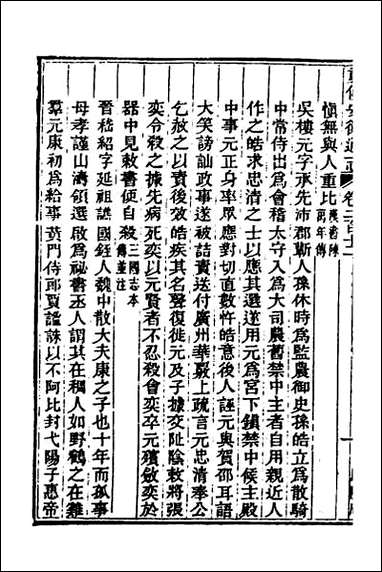 愼無與人重比後漢書陳
禹年傳
吳樓元字承先沛郡蘄人孫休時爲監農御史孫皓立爲散騎
中常侍出爲會稽太守入爲大司農舊禁中主者自用親近人
作之皓求忠清之士以應其選遂用元爲宮下鎮禁中候主殿
中事元正身率眾應對切直數忤皓意後人誣元與賀邵耳語
大笑謗訕政事遂被詰責送付廣州華覈上疏言元忠清奉公
乞赦之以責後效皓疾其名聲復徙元及子據交阯陰敕將張
奕令殺之據先病死奕以元賢者不忍殺會奕卒元殯斂奕於
器中見敕書便自殺三國志本
傳並注
晉嵇紹字延祖譙國銍人魏中散大夫康之子也十年而孤事
母孝謹山濤領選啟爲祕書丞人謂其在稠人如野鶴之在雞
羣元康初爲給事黃門侍郎賈謐誅以不阿比封弋陽子惠帝